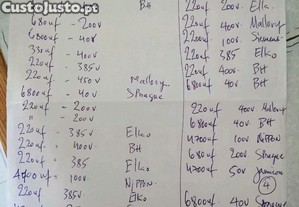 CustoJusto.pt
BH
680uf - 200v
6800uf - 40v
33uf - 40v
220uf - 385v
220uf - 450v Mallory
6800uf - 40v Sprague
220uf - 200v
" - 200v
220uf - 385v Elko
220uf - 400v BH
220uf - 385 Elko
4700uf - 100v Nippon
220uf 385v Elko
220uf 200v
220uf 400v Mallory
2200uf 100v Siemens
220uf 385 Elko
220uf 400v BH
220uf 400v BH
220uf 400v Mallory
6800uf 40v BH
4700uf 100v Nippon
680uf 200v Sprague
4700uf 50v
4
6800uf 40v Sprague